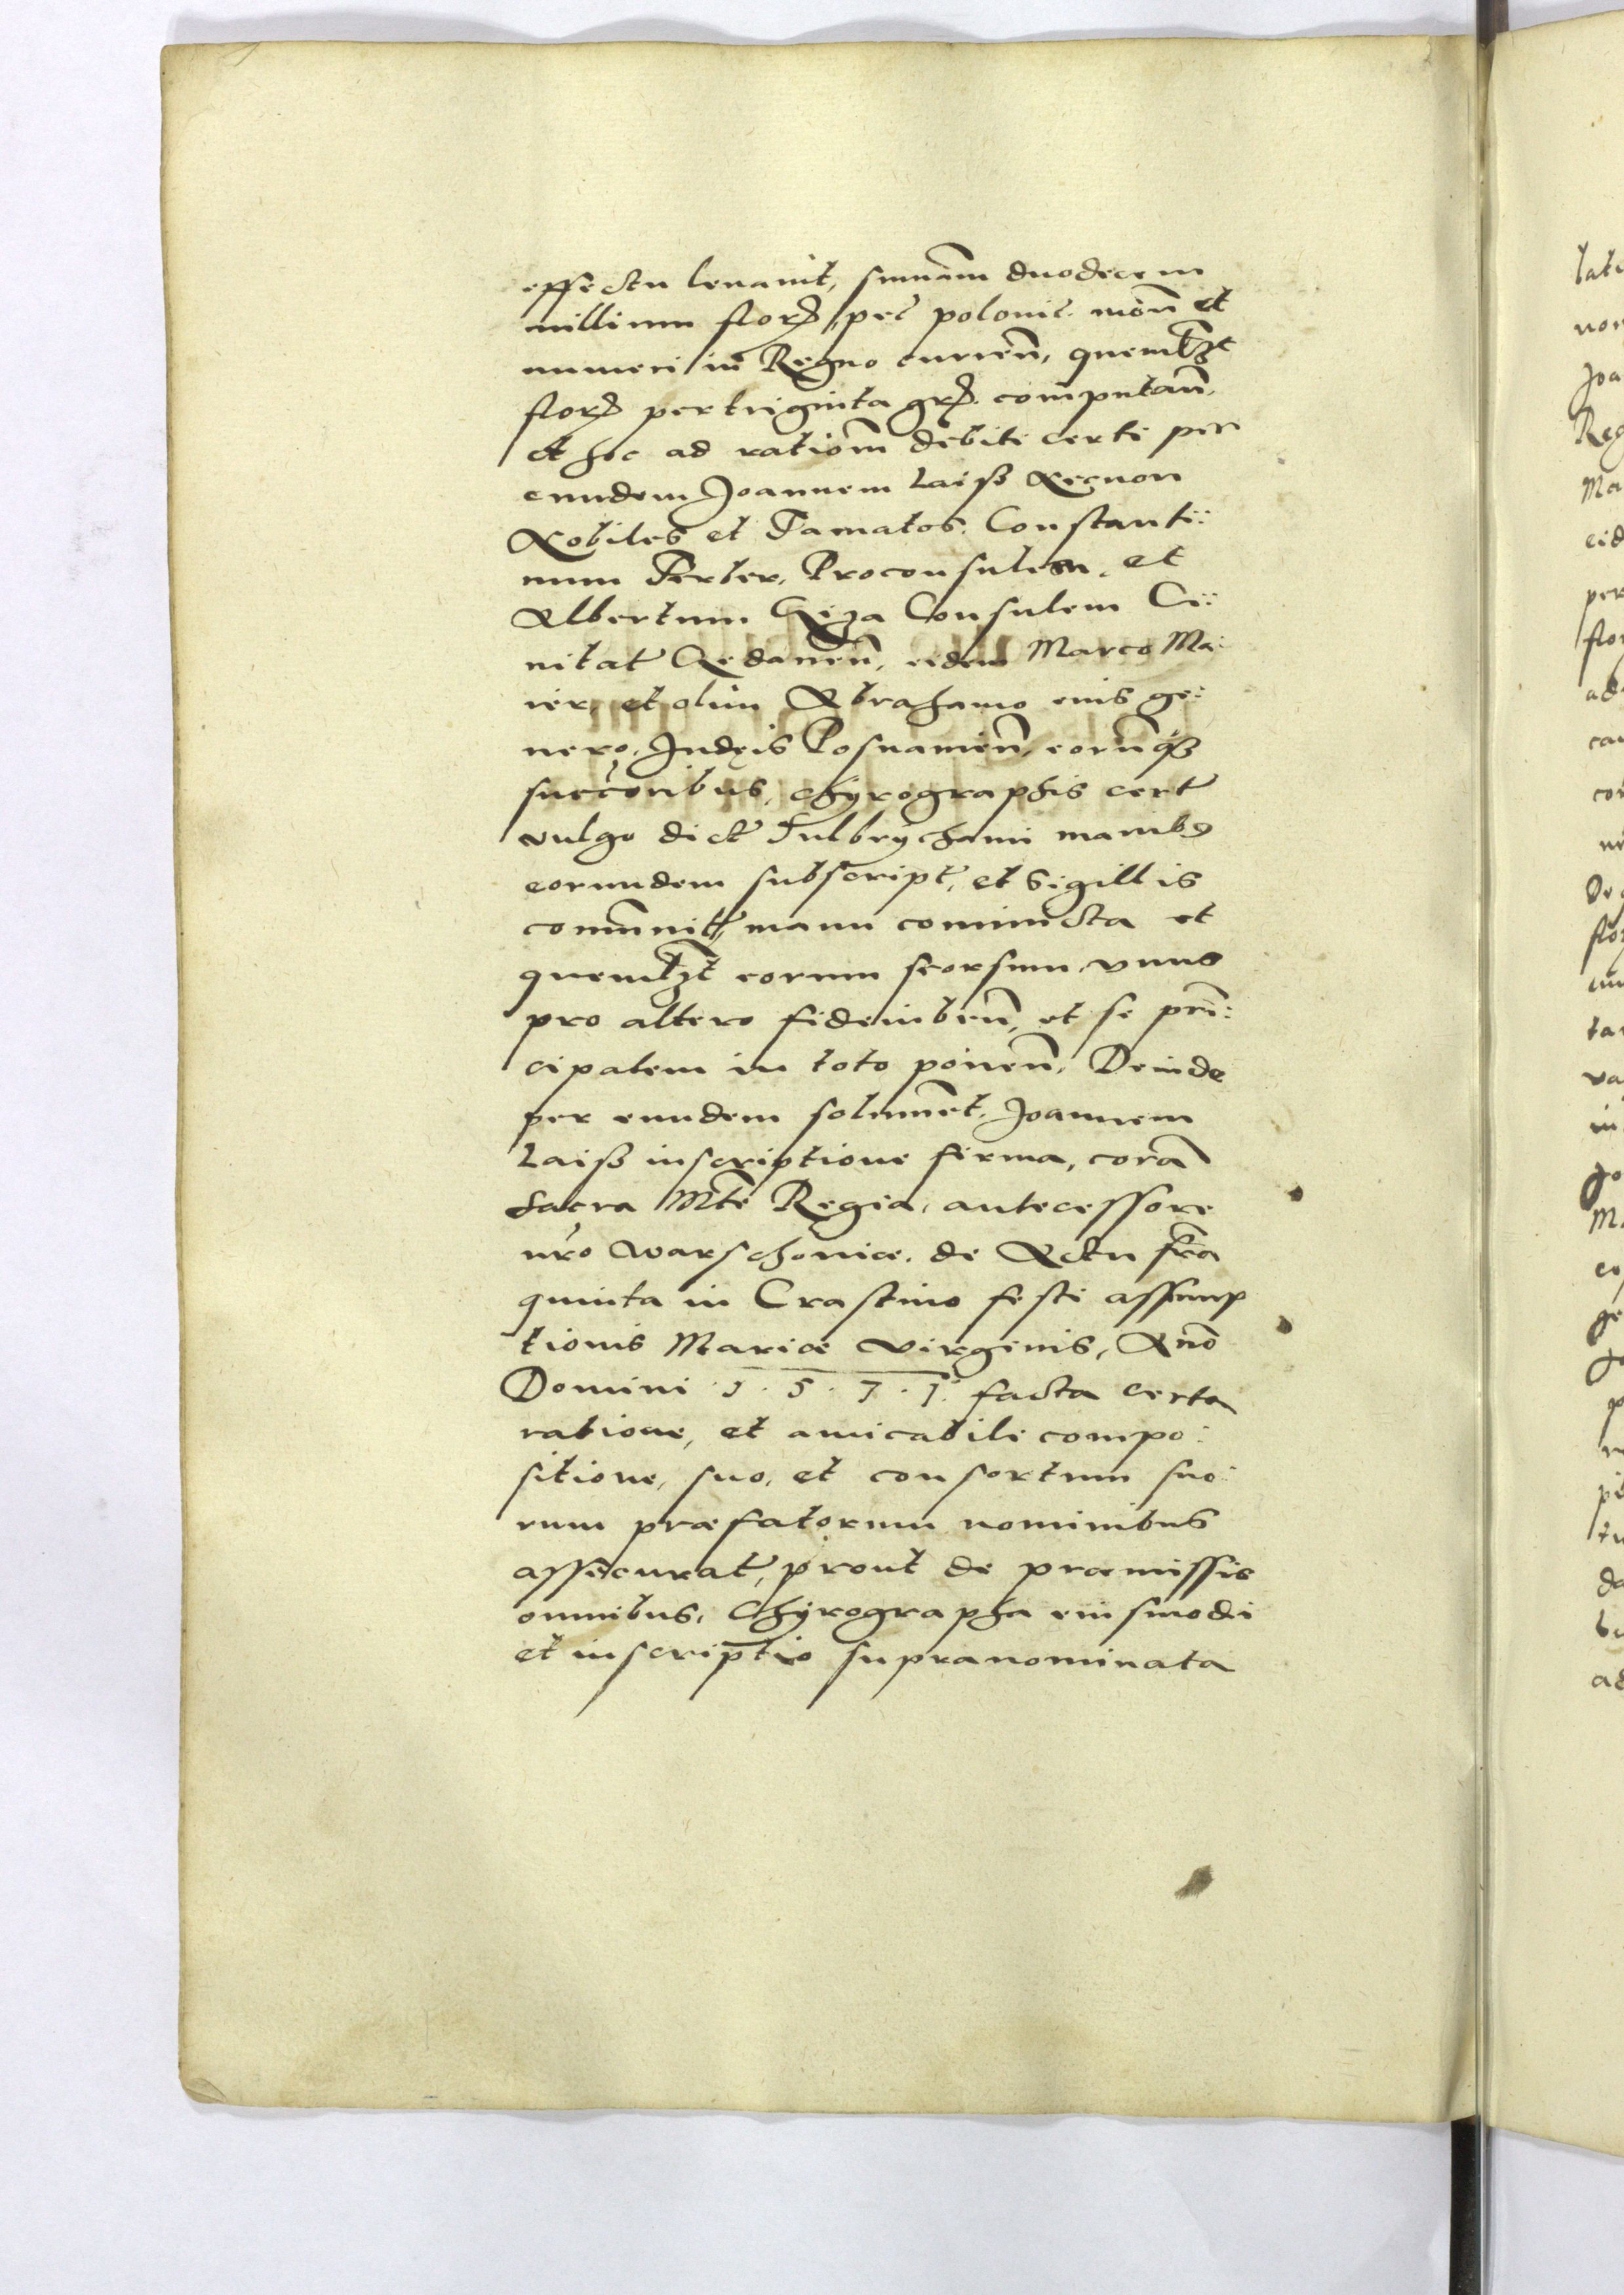 effectu leuauit, sum̄am duodecem
millium flor, pec polonic. mon̄ et
numeri in Regno curren̄, quemlꝫt
flor per triginta gr. computan̄.
et hoc ad ration̄ debiti certi per
eundem Joannem Laisß Necnon
Nobiles et Famatos. Constanti:
num Ferber, Proconsulem, et
Albertum Giza Consulem Ci:
uitat Gedanen̄, eidem Marco Ma:
ier, et olim Abrahamo eius ge:
nero, Judęis Posnanien̄, eorūqꝫ
succ̄oribus, chyrographis cert
vulgo dict Fulbrychami manibꝫ
eorundem subscript, et sigillis
com̄unit, manu coniuncta et
quemlꝫt eorum seorsum, vnus
pro altero fideiuben̄, et se prin̄:
cipalem in toto ponen̄, Deinde
per eundem solum̄et, Joannem
Laisß inscriptione firma, corā
Sacra Mt̄e Regia, antecessore
nr̄o Warschoniæ. de Actu fr̄ia
quinta in Crastino festi assump
tionis Mariæ Virginis, An̄o
Domini 1.5.7.1. facta certa
ratione, et amicabili compo:
sitione, suo, et consortum suo:
rum præfatorum nominibus
assecurat, prout de præmissis
omnibus, Chyrographa eiusmodi
et inscriptio supranominata